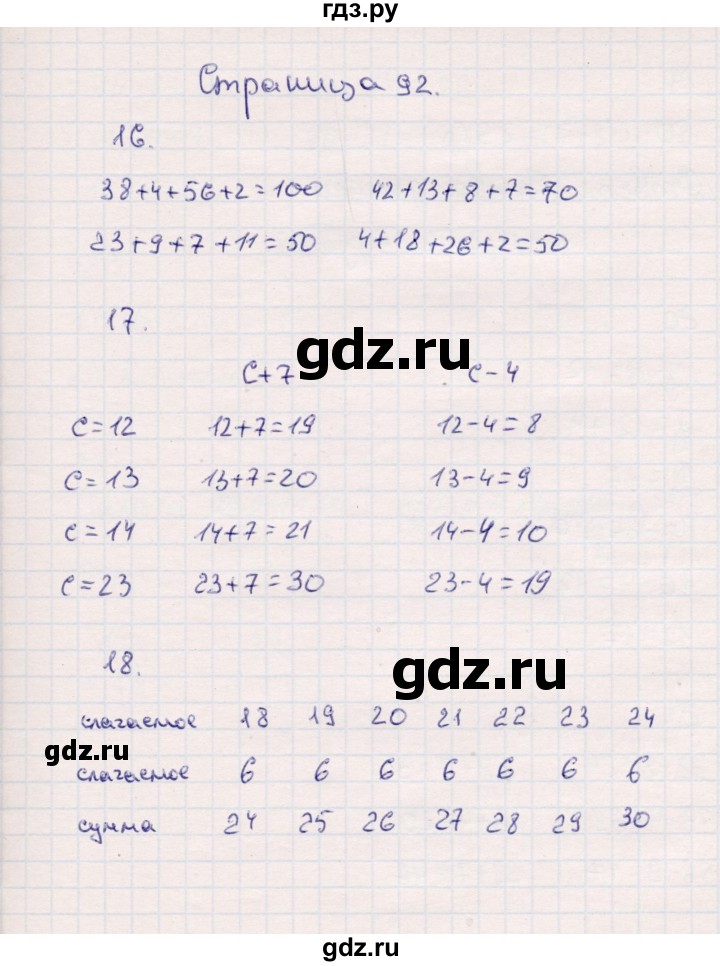 гдз.ру
Страница 92.
16.
38+4+56+2=100 42+13+8+7=70
23+9+7+11=50 4+18+26+2=50
17.
gdz.ru
c+7 c-4
c=12 12+7=19 12-4=8
c=13 13+7=20 13-4=9
c=14 14+7=21 14-4=10
c=23 23+7=30 23-4=19
18.
gdz.ru
слагаемое 18 19 20 21 22 23 24
gdz.ru
слагаемое 6 6 6 6 6 6 6
сумма 24 25 26 27 28 29 30
gdz.ru